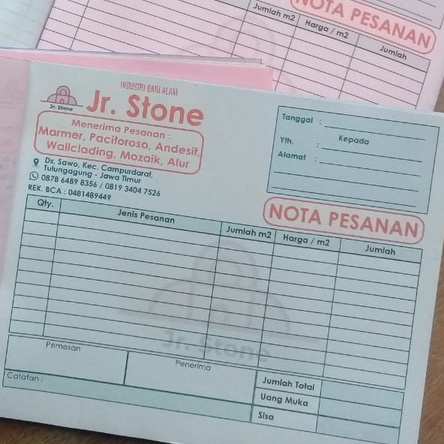 Jumlah m2 Harga / m2
NOTA PESANAN
Jumlah
INDUSTRI BATU ALAM
Jr. Stone
Jr. Stone
Menerima Pesanan :
Marmer, Pacitoroso, Andesit,
Wallclading, Mozaik, Alur
Ds. Sawo, Kec. Campurdarat,
Tulungagung - Jawa Timur
0878 6489 8356 / 0819 3404 7526
REK. BCA : 0481489449
Tanggal :
Kepada
Yth. :
Alamat :
NOTA PESANAN
Qty. Jenis Pesanan Jumlah m2 Harga / m2 Jumlah
Jr. Stone
Pemesan Penerima
Jumlah Total
Catatan :
Uang Muka
Sisa